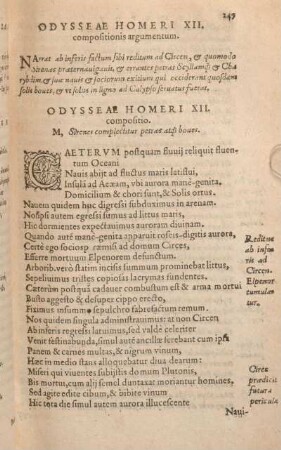 247
ODYSSEAE HOMERI XII.
compositionis argumentum.
NArrat ab inferis factum sibi reditum ad Circen, & quomodo
Sirenas praeternauigauit, & errantes petras Scyllamq́; & Cha
rybdim & suae nauis & sociorum exitium qui occiderant quosdam
solis boues, & vt solus in ligno ad Calypso seruatus fuerat.
ODYSSEAE HOMERI XII.
compositio.
M, Sirenes complectitur petras atq; boues.
CAETERVM postquam fluuij reliquit fluen-
tum Oceani
Nauis abijt ad fluctus maris latiflui,
Insulā ad Aeæam, vbi aurora manè-genita,
Domicilium & chori sunt, & Solis ortus.
Nauem quidem huc digressi subduximus in arenam.
Nosipsi autem egressi sumus ad littus maris,
Hic dormientes expectauimus auroram diuinam.
Quando autē manè-genita apparuit roseis-digitis aurora,
Certè ego socios præmisi ad domum Circes,
Efferre mortuum Elpenorem defunctum.
Arboribꝰ verò statim incisis summum prominebat littus,
Sepeliuimus tristes copiosas lacrymas fundentes.
Caeterùm postquā cadauer combustum est & arma mortui
Busto aggesto & desuper cippo erecto,
Fiximus in summo sepulchro fabrefactum remum.
Nos quidem singula administrauimus: at non Circen
Ab inferis regressi latuimus, sed valdè celeriter
Venit festinabunda, simul autē ancillæ ferebant cum ipsa
Panem & carnes multas, & nigrum vinum,
Hæc in medio stans alloquebatur diua dearum:
Miseri qui viuentes subijstis domum Plutonis,
Bis mortui, cum alij semel duntaxat moriantur homines,
Sed agite edite cibum, & bibite vinum
Hic tota die simul autem aurora illucescente
Naui-
Reditus
ab infe-
ris ad
Circen.
Elpenor
tumulan
tur.
Circe
prædicit
futura
pericula